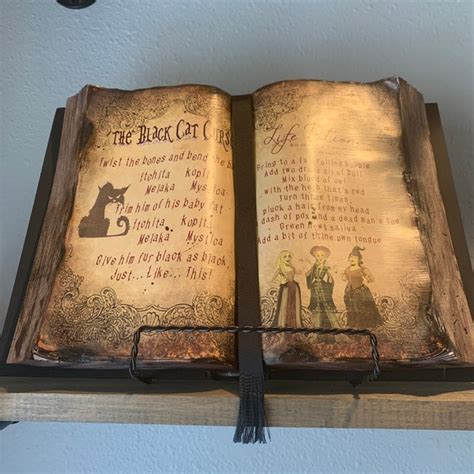 The Black Cat Curs
Twist the bones and bend the b
Itchita Kopit
Melaka Mystica
Trim him of his baby fat
Itchita Kopit
Melaka Mystica
Give him fur black as black,
Just... Like... This!
Life Potion
Bring to a full rolling bubble
Add two drops oil of boil
Mix blood of owl
with the herb that's red
Turn three times,
pluck a hair from my head
dash of pox and a dead man's toe
Green newt saliva
Add a bit of thine own tongue